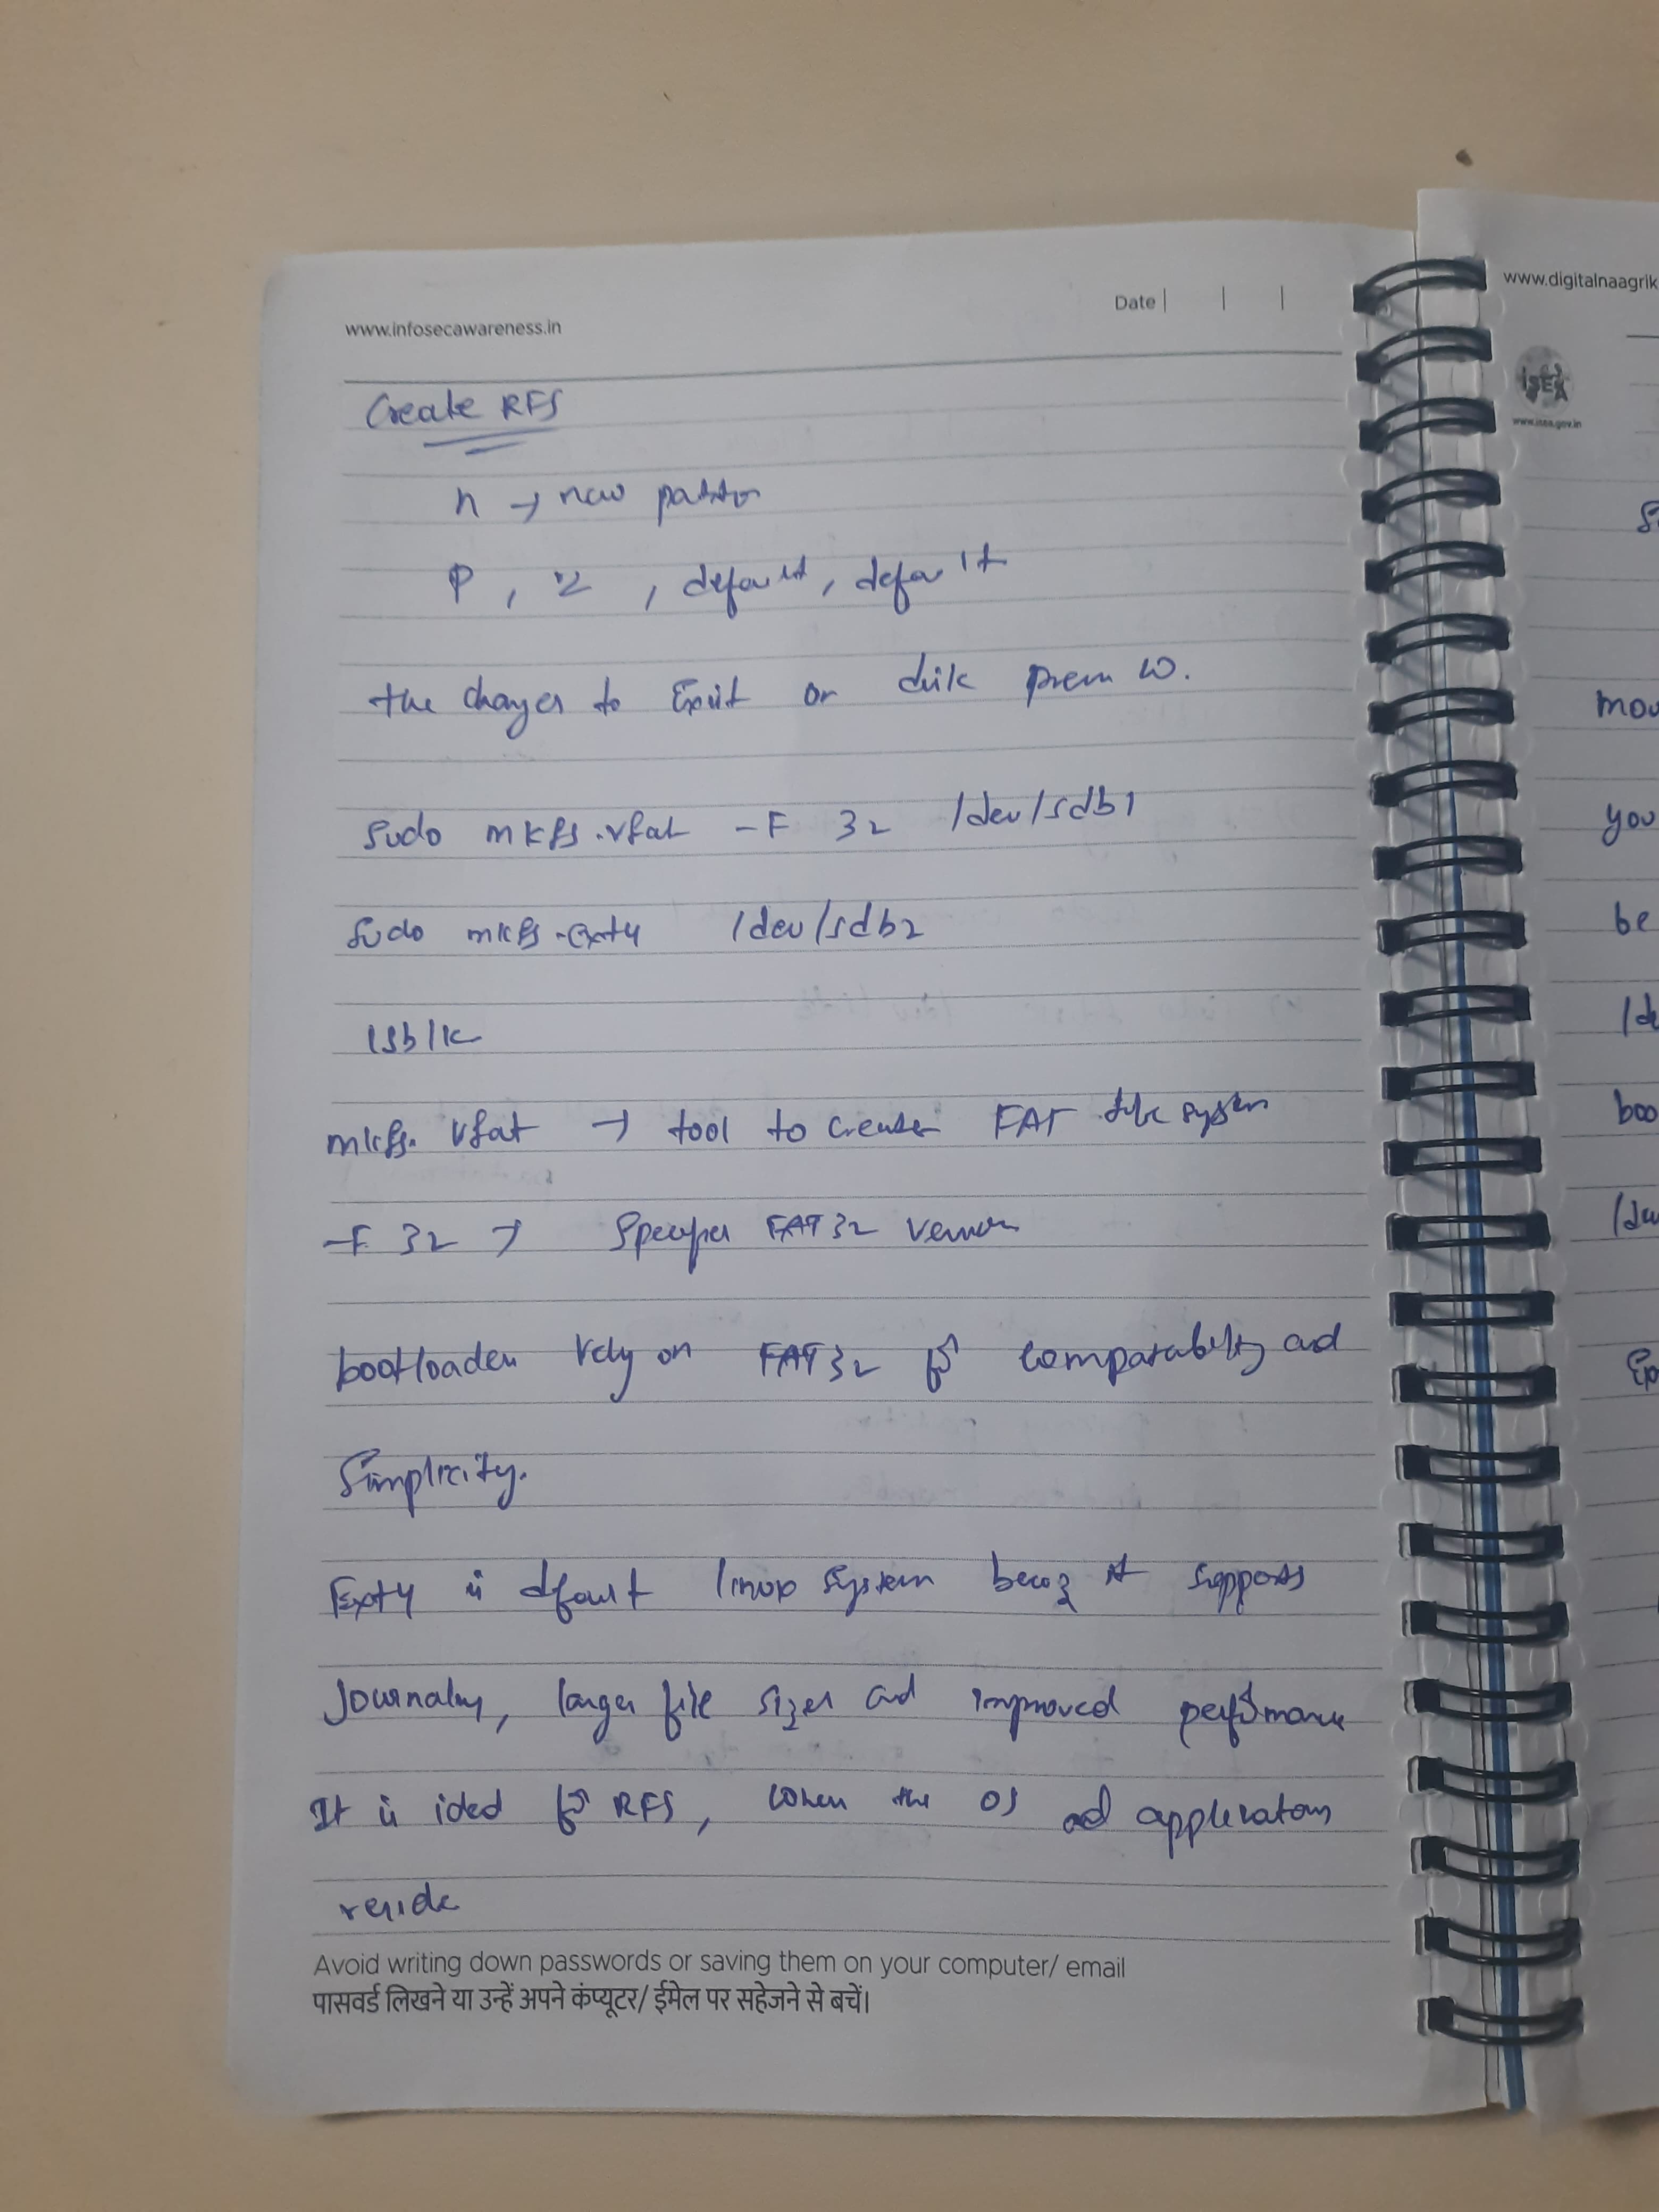 www.infosecawareness.in
Date
Create RFS
n → new
P, 2, default, default
the changes to Exit or disk press w.
sudo mkfs.vfat -F 32 /dev/sdb1
sudo mkfs.ext4 /dev/sdb2
lsblk
mkfs.vfat → tool to create FAT file system
-F 32 → Specifies FAT32 version
bootloader rely on FAT32 for and
Simplicity.
Ext4 is default linux system becoz it supports
Journaling, larger file sizes and improved performance
It is ideal for RFS, when the OS and applications
reside
Avoid writing down passwords or saving them on your computer/ email
पासवर्ड लिखने या उन्हें अपने कंप्यूटर/ ईमेल पर सहेजने से बचें।
www.digitalnaagrik
ISEA
www.isea.gov.in
mou
you
be
/de
boo